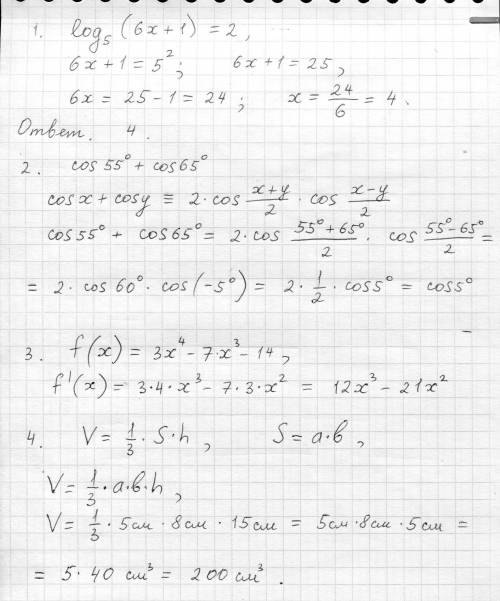 1. log₅(6x+1) = 2,
6x+1 = 5²; 6x+1 = 25,
6x = 25-1 = 24; x = 24/6 = 4.
Ответ. 4.
2. cos 55° + cos 65°
cos x + cos y ≡ 2·cos (x+y)/2 · cos (x-y)/2
cos 55° + cos 65° = 2·cos (55°+65°)/2 · cos (55°-65°)/2 =
= 2·cos 60°·cos(-5°) = 2·1/2·cos 5° = cos 5°
3. f(x) = 3x⁴ - 7·x³ - 14,
f'(x) = 3·4·x³ - 7·3·x² = 12x³ - 21x²
4. V = 1/3·S·h, S = a·b,
V = 1/3·a·b·h,
V = 1/3·5см·8см·15см = 5см·8см·5см =
= 5·40 см³ = 200 см³.